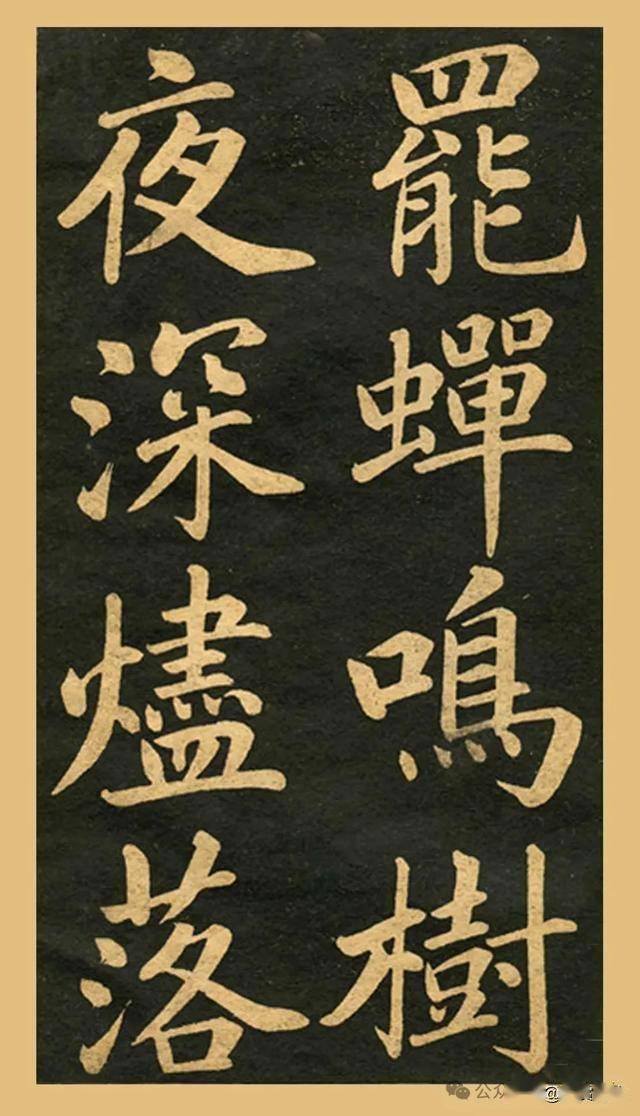 罷蟬鳴樹
夜深燼落
公众
@